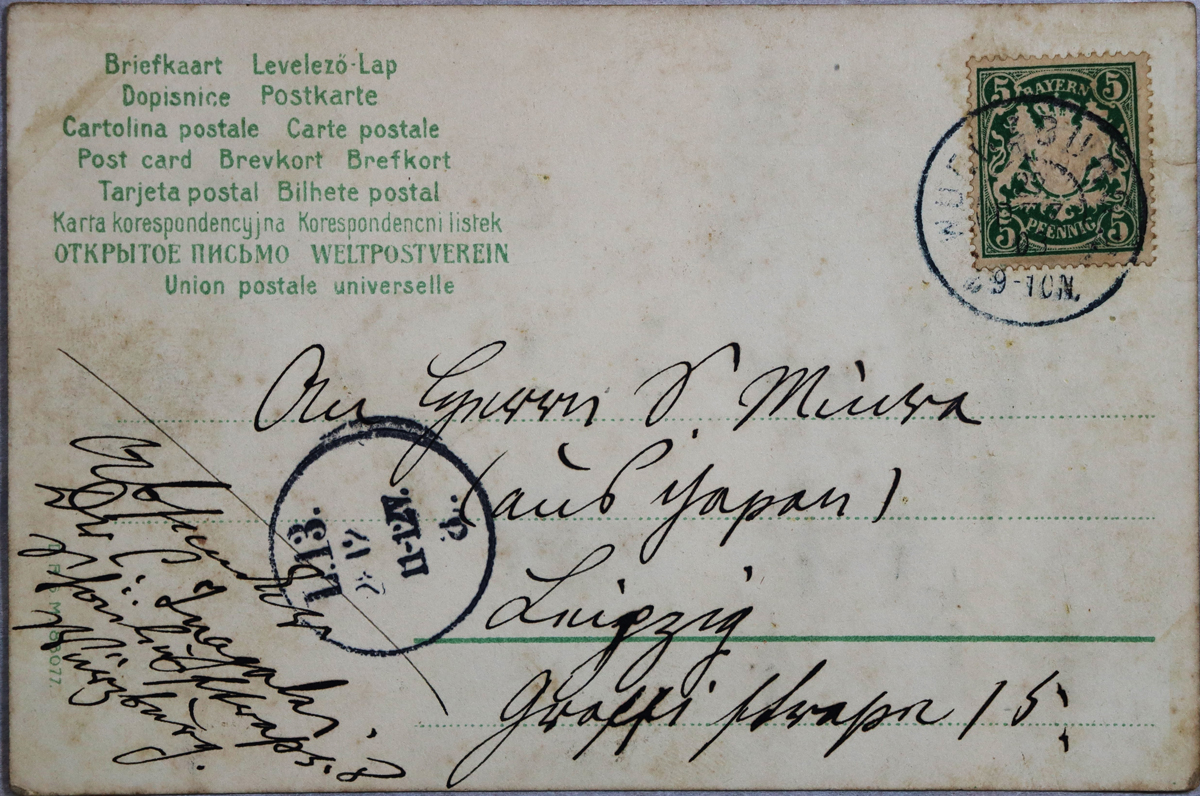 Briefkaart Levelező-Lap
Dopisnice Postkarte
Cartolina postale Carte postale
Post card Brevkort Brefkort
Tarjeta postal Bilhete postal
Karta korespondencyjna Korespondencni listek
ОТКРЫТОЕ ПИСЬМО WELTPOSTVEREIN
Union postale universelle
5 BAYERN 5
5 PFENNIG 5
9-10N.
An Herrn S Miura
(aus Japan)
Leipzig
Grassi strasse 15
L.13.
11-12V.
Absender
Würzburg.